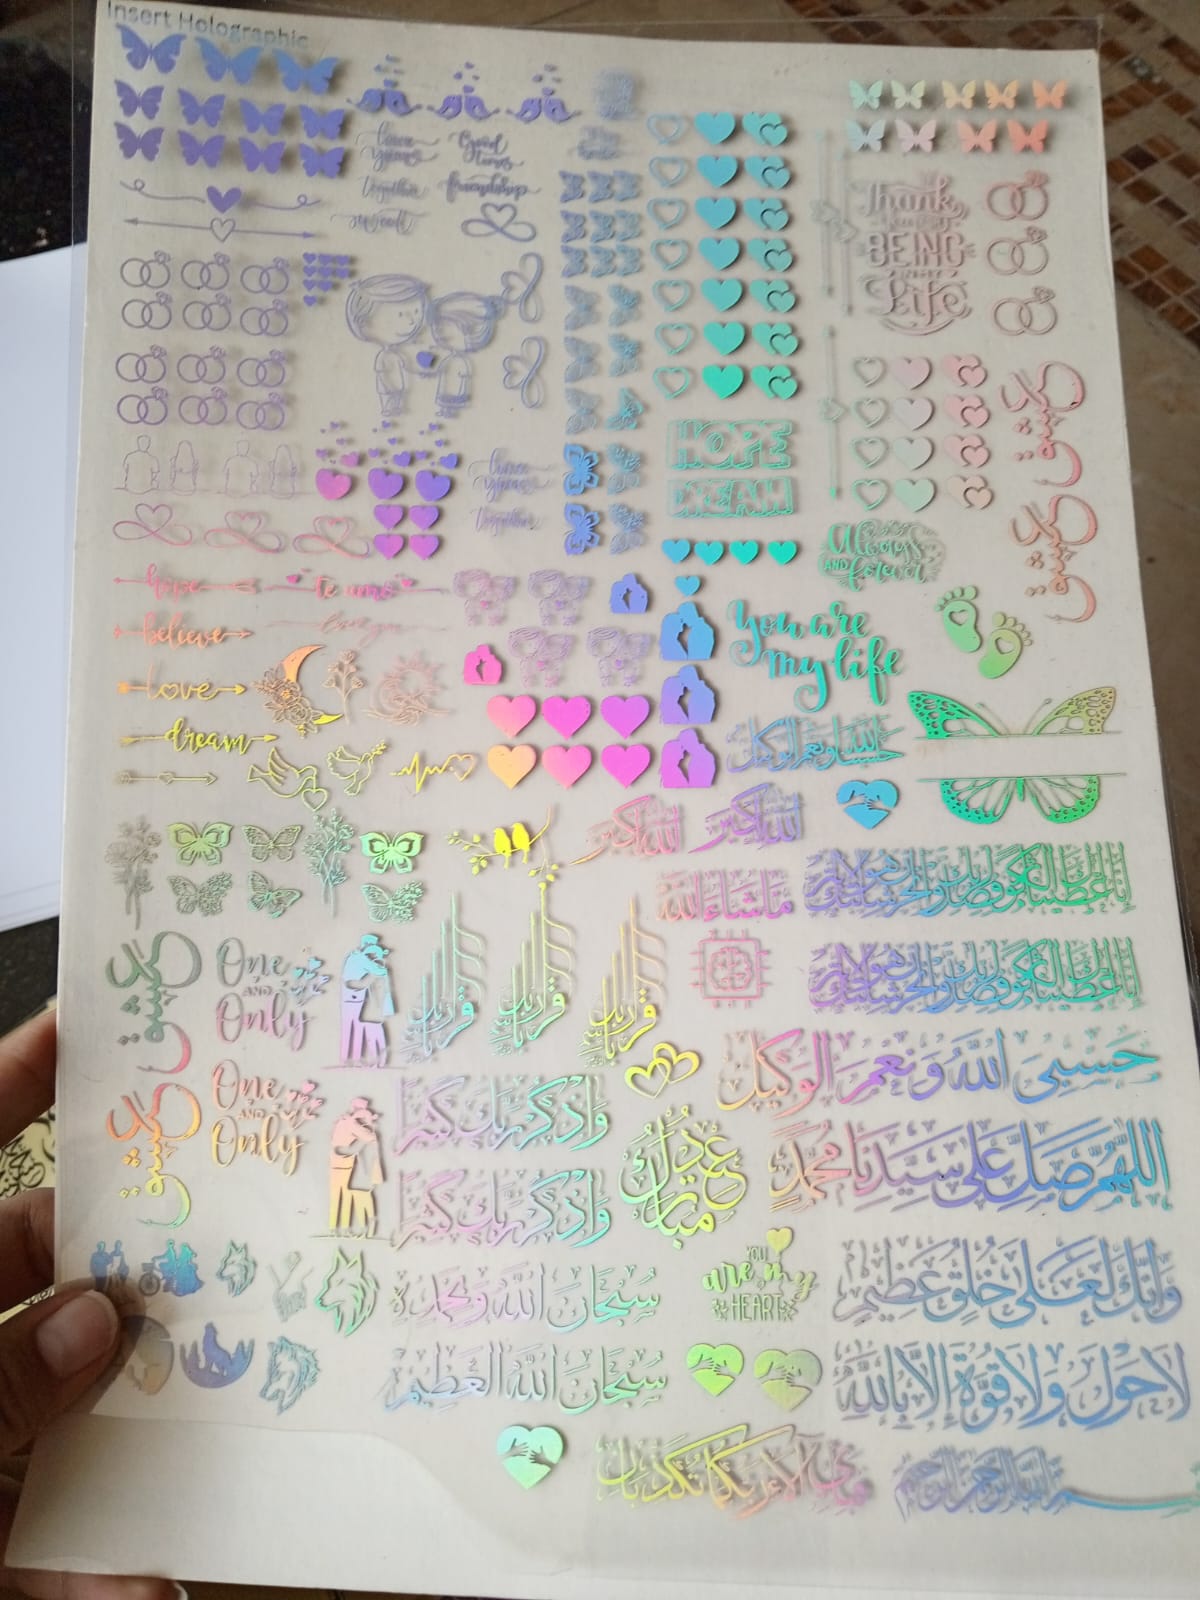 Insert Holographic
Good
times
together
friendship
together
Thank
you for
BEING
in my
Life
HOPE
DREAM
Always
AND forever
hope
te amo
believe
love
dream
You are
my life
حسبنا الله ونعم الوكيل
الله اكبر
الله اكبر
ما شاء الله
إنا أعطيناك الكوثر فصل لربك وانحر إن شانئك هو الأبتر
إنا أعطيناك الكوثر فصل لربك وانحر إن شانئك هو الأبتر
عشق
عشق
عشق
عشق
One
AND
Only
One
AND
Only
حسبي الله ونعم الوكيل
واذكر ربك كثيرا
عيد مبارك
اللهم صل على سيدنا محمد
واذكر ربك كثيرا
سبحان الله وبحمده
YOU
are my
HEART
وإنك لعلى خلق عظيم
سبحان الله العظيم
لا حول ولا قوة إلا بالله
فبأي آلاء ربكما تكذبان
بسم الله الرحمن الرحيم